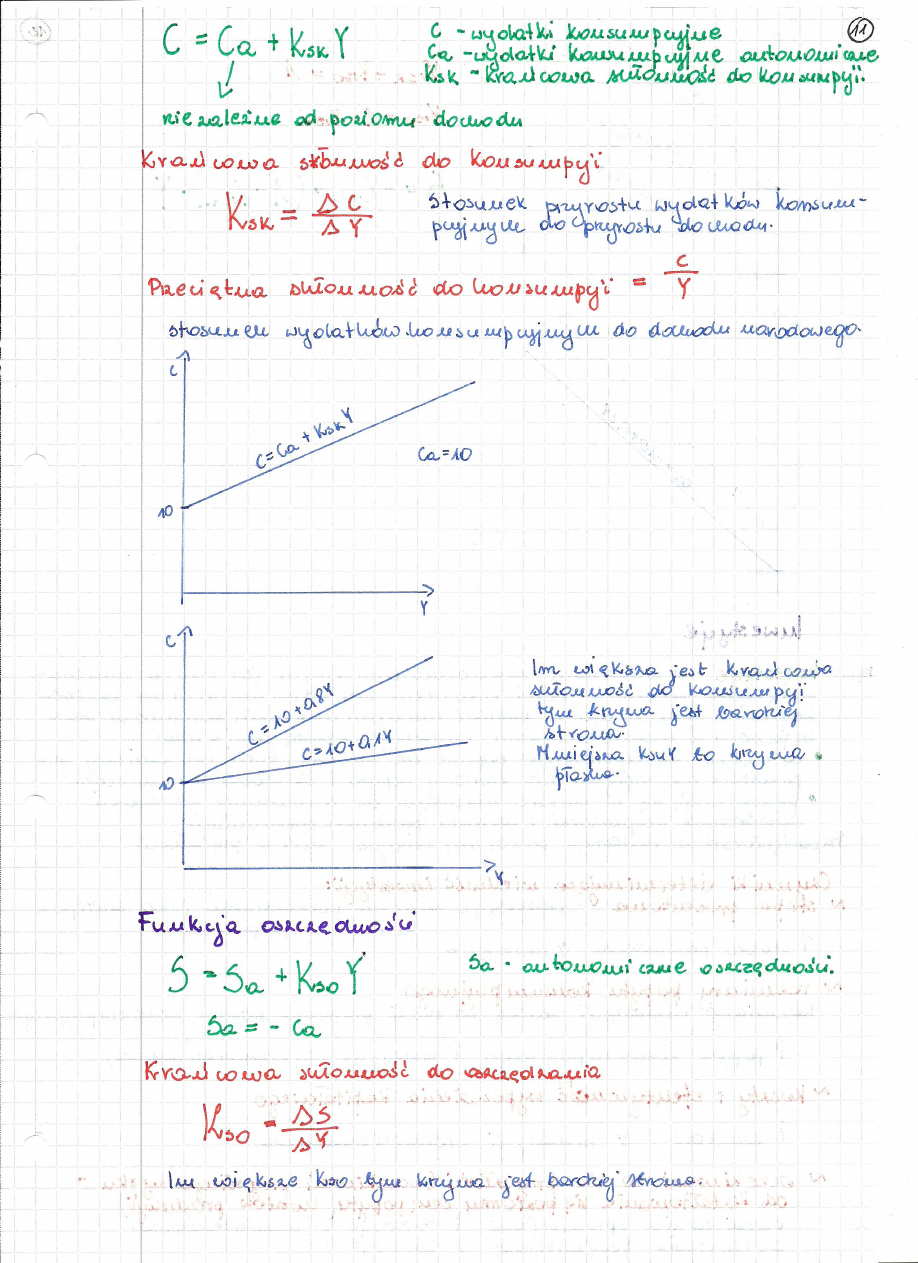 11
C = Ca + Ksk Y
C - wydatki konsumpcyjne
Ca - wydatki konsumpcyjne autonomiczne
Ksk - Krańcowa skłonność do konsumpcji.
niezależne od poziomu dochodu
Krańcowa skłonność do konsumpcji
Ksk = ΔC / ΔY
Stosunek przyrostu wydatków konsum-
pcyjnych do przyrostu dochodu.
Przeciętna skłonność do konsumpcji = C / Y
stosunek wydatków konsumpcyjnych do dochodu narodowego.
C
C = Ca + Ksk Y
Ca = 10
10
Y
C
C = 10 + 0,8Y
C = 10 + 0,1Y
10
Y
Im większa jest krańcowa
skłonność do konsumpcji
tym krzywa jest bardziej
stroma.
Mniejsza KskY to krzywa
płaska.
Funkcja oszczędności
S = Sa + Kso Y
Sa - autonomiczne oszczędności.
Sa = - Ca
Krańcowa skłonność do oszczędzania
Kso = ΔS / ΔY
Im większe Kso tym krzywa jest bardziej stroma.